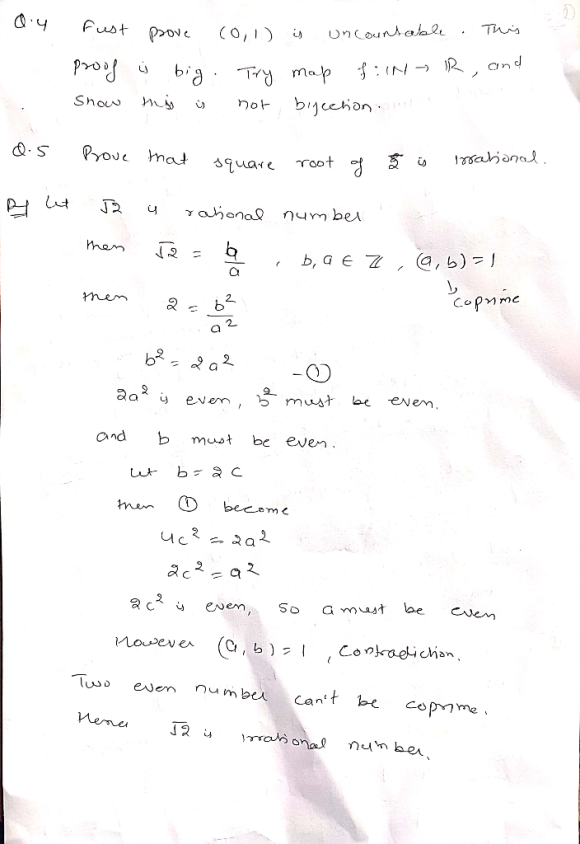 Q.4 First prove (0,1) is uncountable. This
proof is big. Try map f: ℕ → ℝ, and
show this is not bijection.
Q.5 Prove that square root of 2 is irrational.
Let √2 is rational number
then √2 = b/a , b, a ∈ ℤ, (a, b) = 1
coprime
then 2 = b²/a²
b² = 2a² -①
2a² is even, b² must be even.
and b must be even.
Let b = 2c
then ① become
4c² = 2a²
2c² = a²
2c² is even, so a must be even
However (a, b) = 1, Contradiction.
Two even number can't be coprime.
Hence √2 is irrational number.